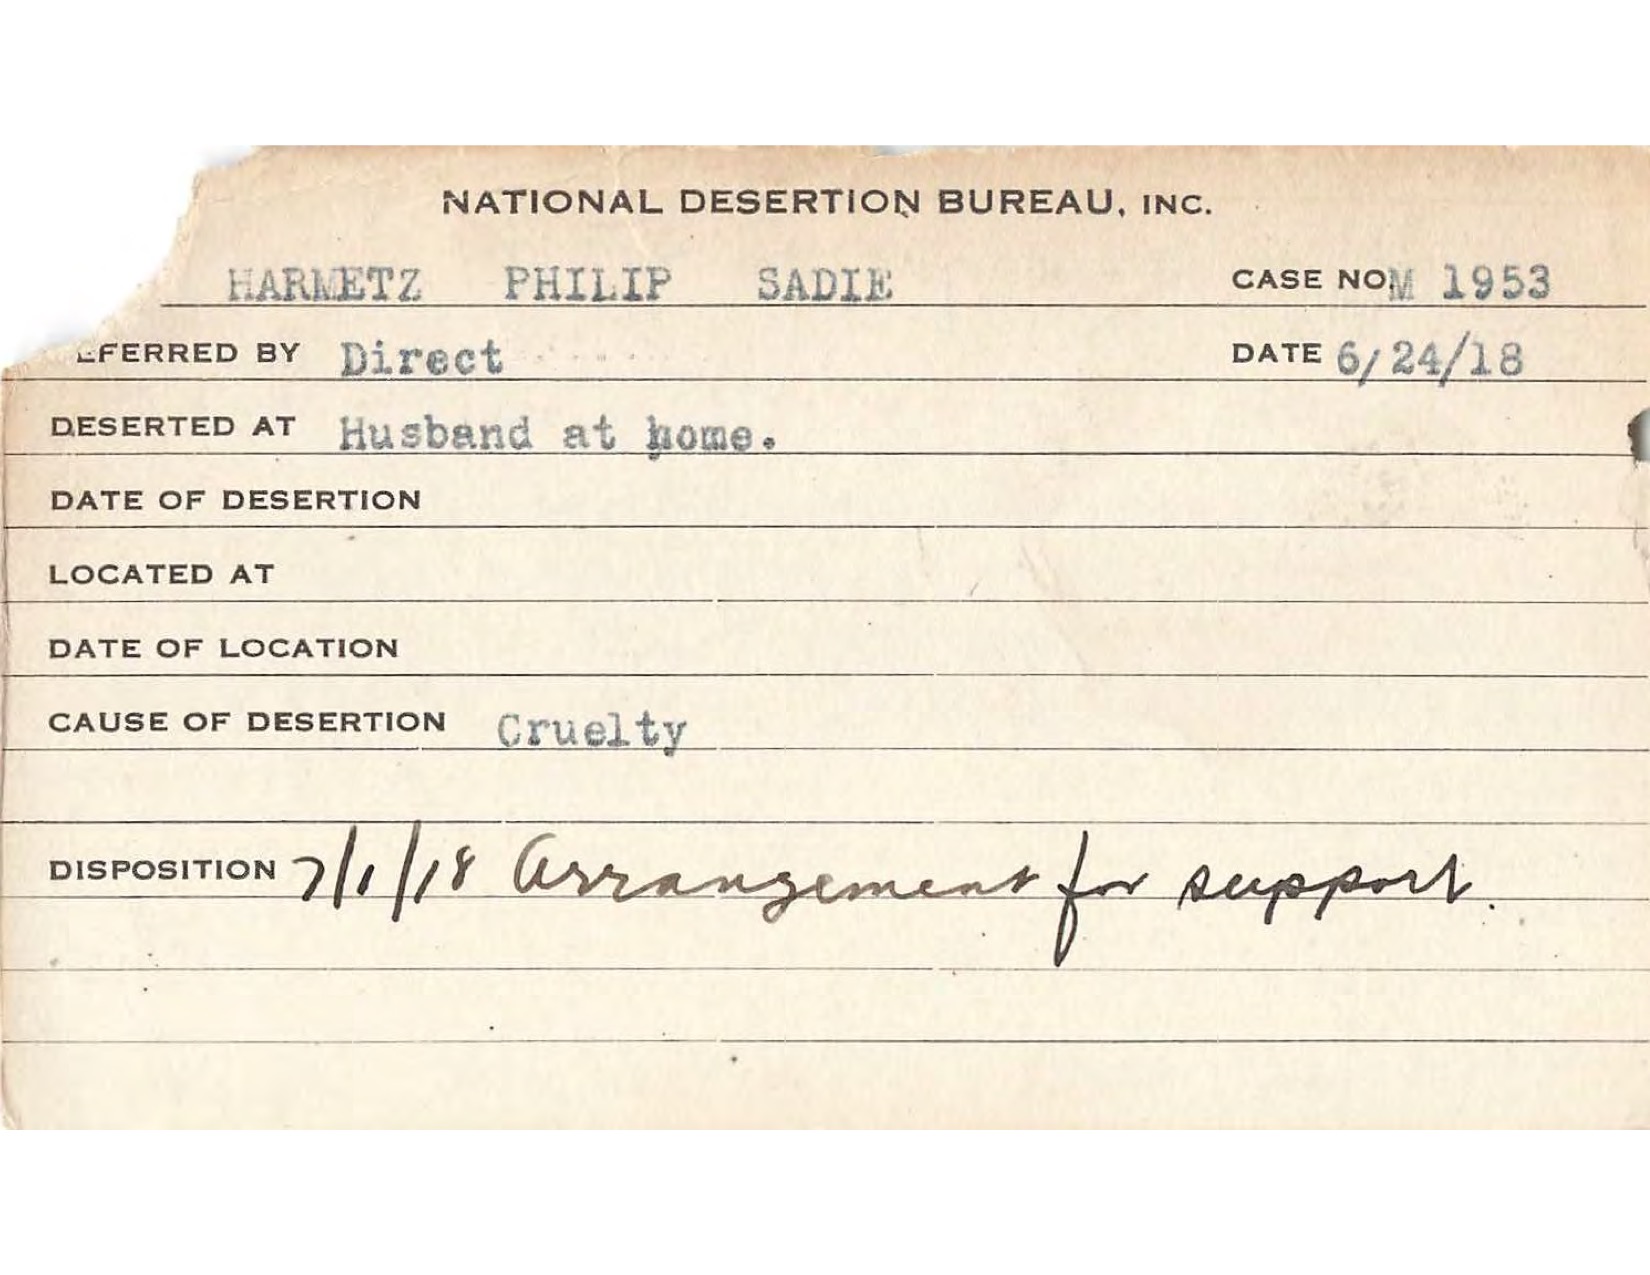 NATIONAL DESERTION BUREAU, INC.
HARMETZ PHILIP SADIE CASE NO. M 1953
EFERRED BY Direct DATE 6/24/18
DESERTED AT Husband at home.
DATE OF DESERTION
LOCATED AT
DATE OF LOCATION
CAUSE OF DESERTION Cruelty
DISPOSITION 7/1/18 Arrangement for support.